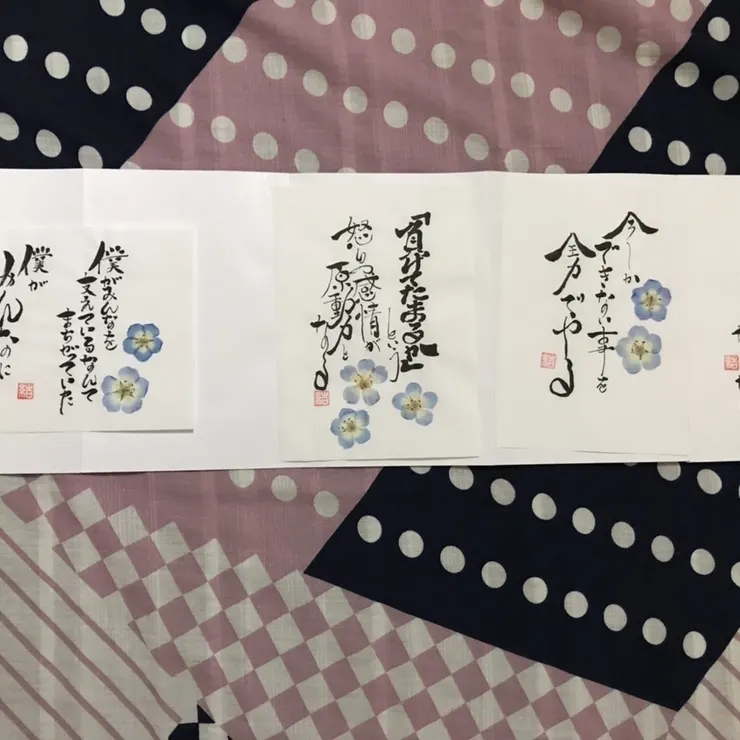 今しか
できない事を
全力でやる
結
「負けてたまるか」
という
怒りの感情が
原動力と
なる
結
僕がみんなを
支えているなんて
まちがっていた
僕が
みんなに
結